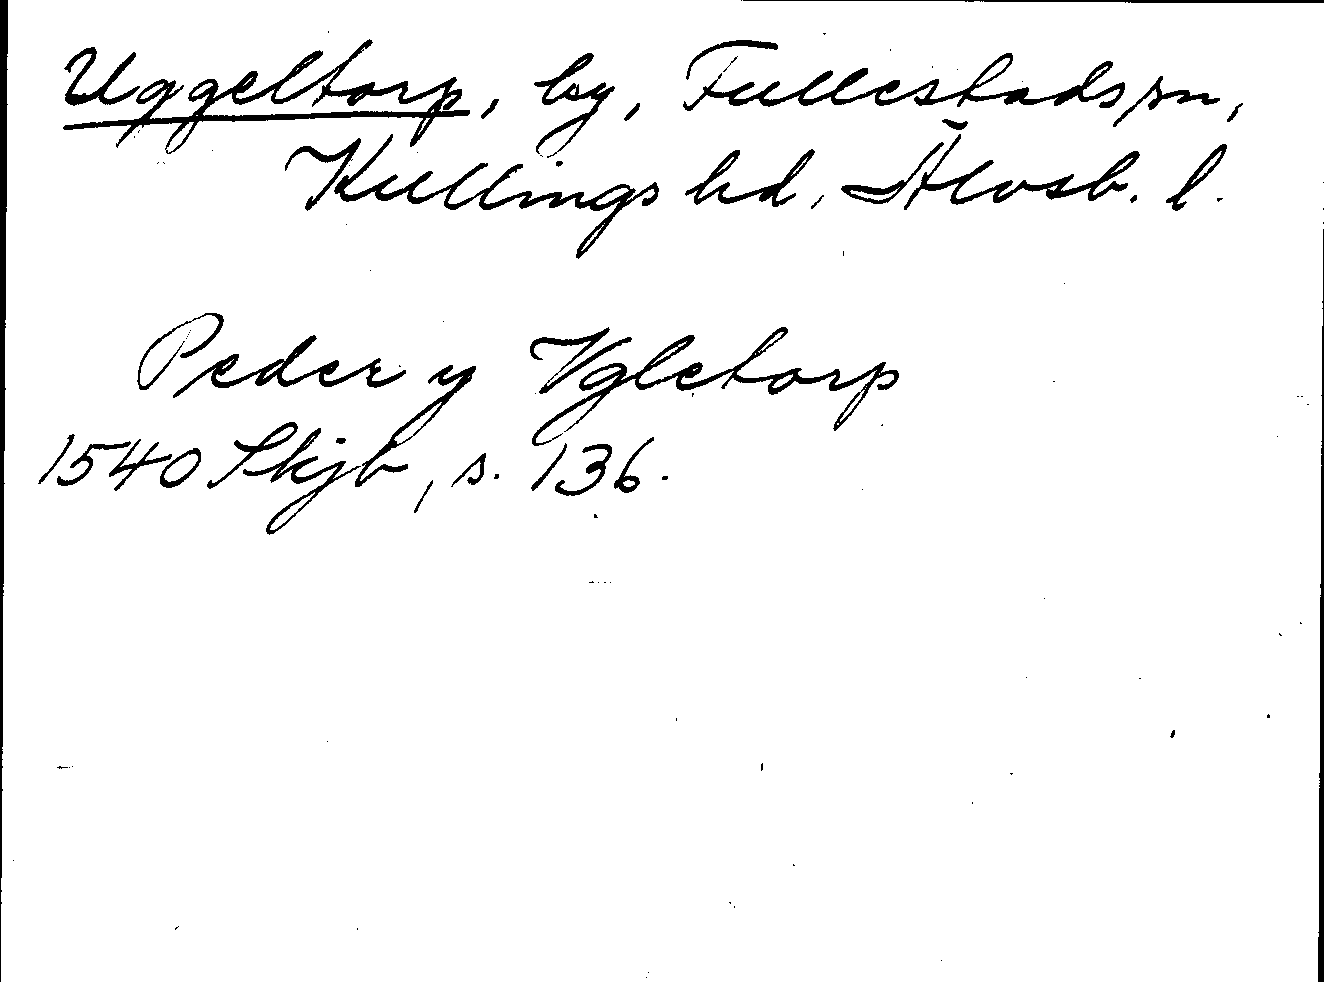 Uggeltorp, by, Fullestads sn,
Kullings hd, Älvsb. l.
Peder y Vgletorp
1540 Skjb, s. 136.